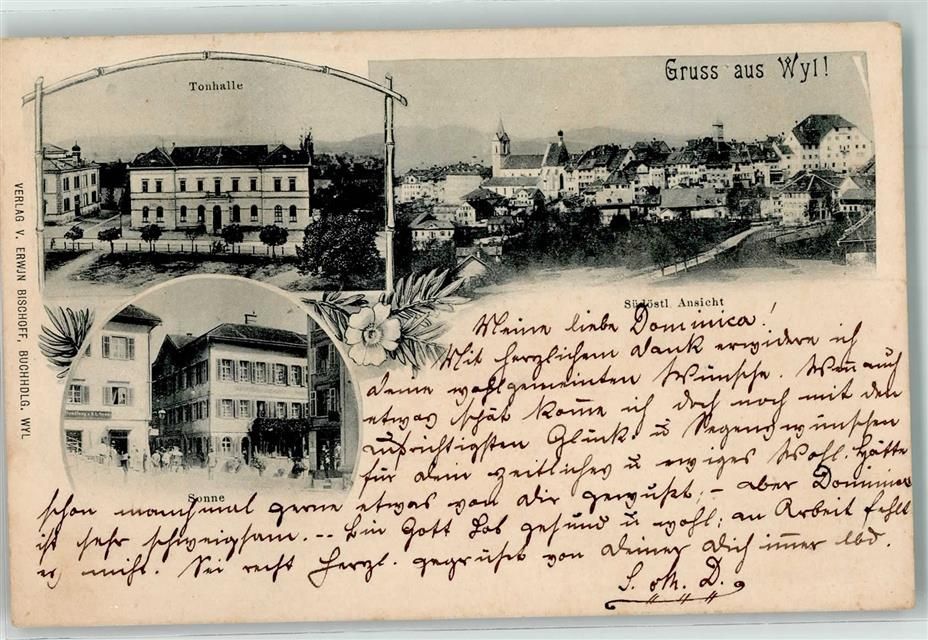 Tonhalle
Gruss aus Wyl!
Südöstl. Ansicht
Sonne
VERLAG V. ERWIN BISCHOFF, BUCHHDLG. WYL
Meine liebe Dominica!
Mit herzlichem Dank erwidere ich
deine wohlgemeinten Wünsche. Wenn auch
etwas spät kome ich doch noch mit den
aufrichtigsten Glück- u Segenswünschen
für dein zeitliches u ewiges Wohl. Hätte
schon manchmal gerne etwas von dir gewußt, – aber Dominica
ist sehr schweigsam. -- Bin Gott Lob gesund u wohl; an Arbeit fehlt
es nicht. Sei recht herzl. gegrüßt von deiner dich imer lbd.
S. M. D.